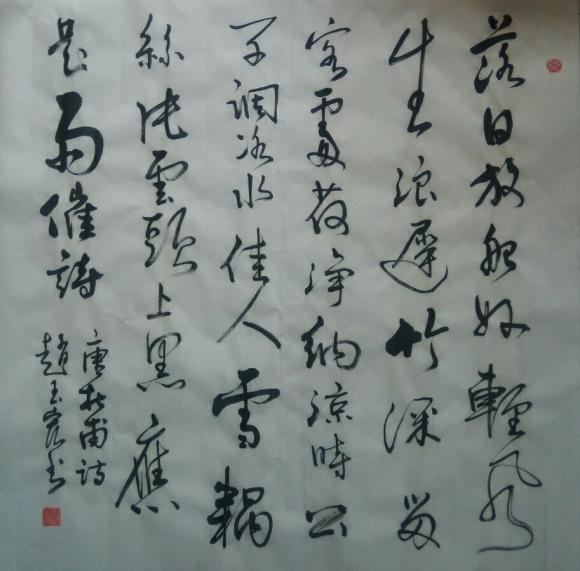 落日放船好輕風
生浪遲竹深留
客處荷淨納涼時公
子調冰水佳人雪耦
絲片雲頭上黑應
是雨催詩
唐杜甫詩
趙玉书